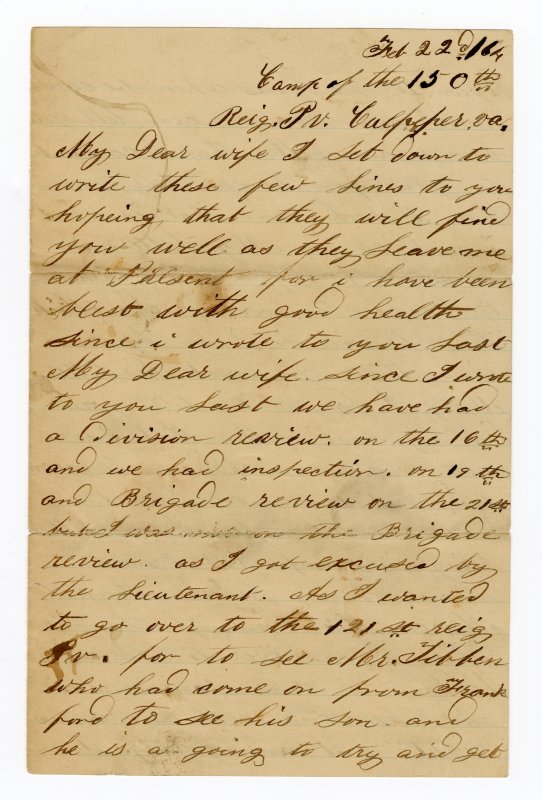 Feb 22d /64
Camp of the 150th
Reig. P v. Culpeper. va.
My Dear wife I set down to
write these few lines to you
hopeing that they will find
you well as they leave me
at Present for i have been
blest with good health
since i wrote to you last
My Dear wife. since I wrote
to you last we have had
a division review. on the 16th
and we had inspection. on 19th
and Brigade review on the 21st
but I was on the Brigade
review. as I got excused by
the Lieutenant. As I wanted
to go over to the 121st reig
P v. for to see Mr. Tibben
who had come on from Frank
ford to see his son. and
he is a going to try and get